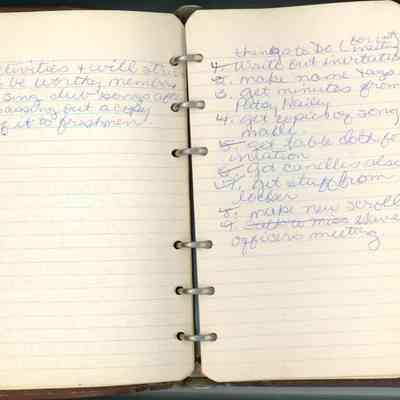 ctivities & will strive
be worthy members
Sing club songs after
passing out a copy
of it to freshmen.
things to Do (for int.
meeting
1. Write out invitations
2. make name tags
3. get minutes from
Patsy Hailey
4. get copies of song
made.
5. get table cloth for
6. Get candles also
7. get stuff from
locker
8. make new scroll
9. talk to miss
officers meeting.